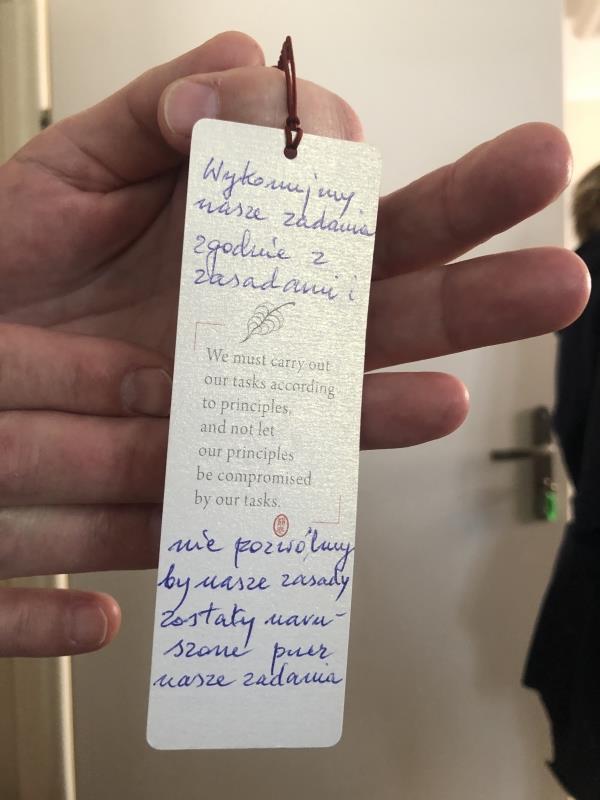 Wykonujmy
nasze zadania
zgodnie z
zasadami i
We must carry out
our tasks according
to principles,
and not let
our principles
be compromised
by our tasks.
nie pozwólmy
by nasze zasady
zostały naru-
szone przez
nasze zadania